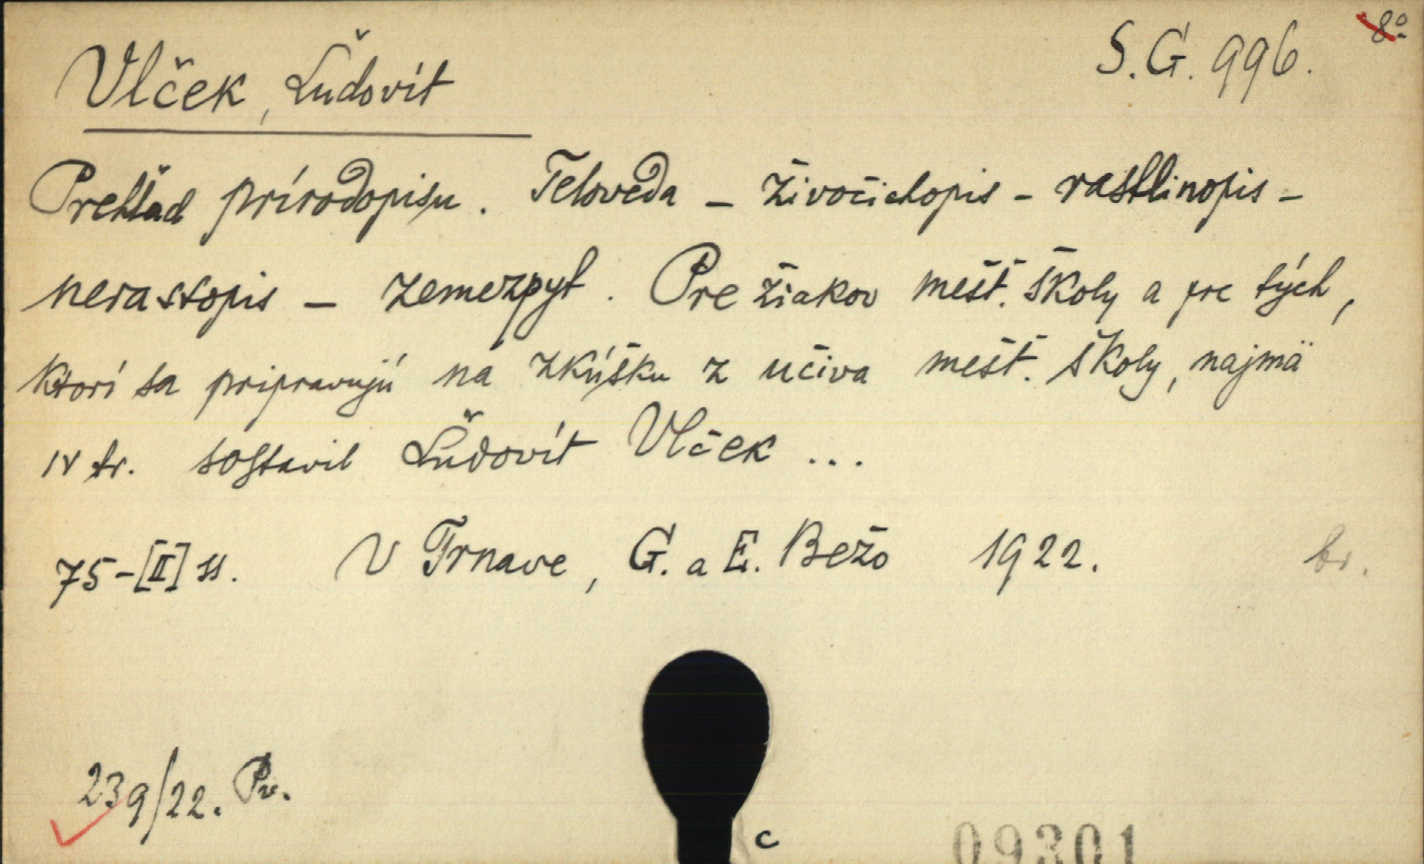 S. G. 996. 8°
Vlček, Ľudovít
Prehľad prírodopisu. Teloveda – živočichopis – rastlinopis –
nerastopis – zemezpyt. Pre žiakov mešť. školy a pre tých,
ktorí sa pripravujú na zkúšku z učiva mešť. školy, najmä
IV tr. sostavil Ľudovít Vlček ...
75-[II] ss. V Trnave, G. a E. Bežo 1922. br.
239/22. Pr.
c
09301